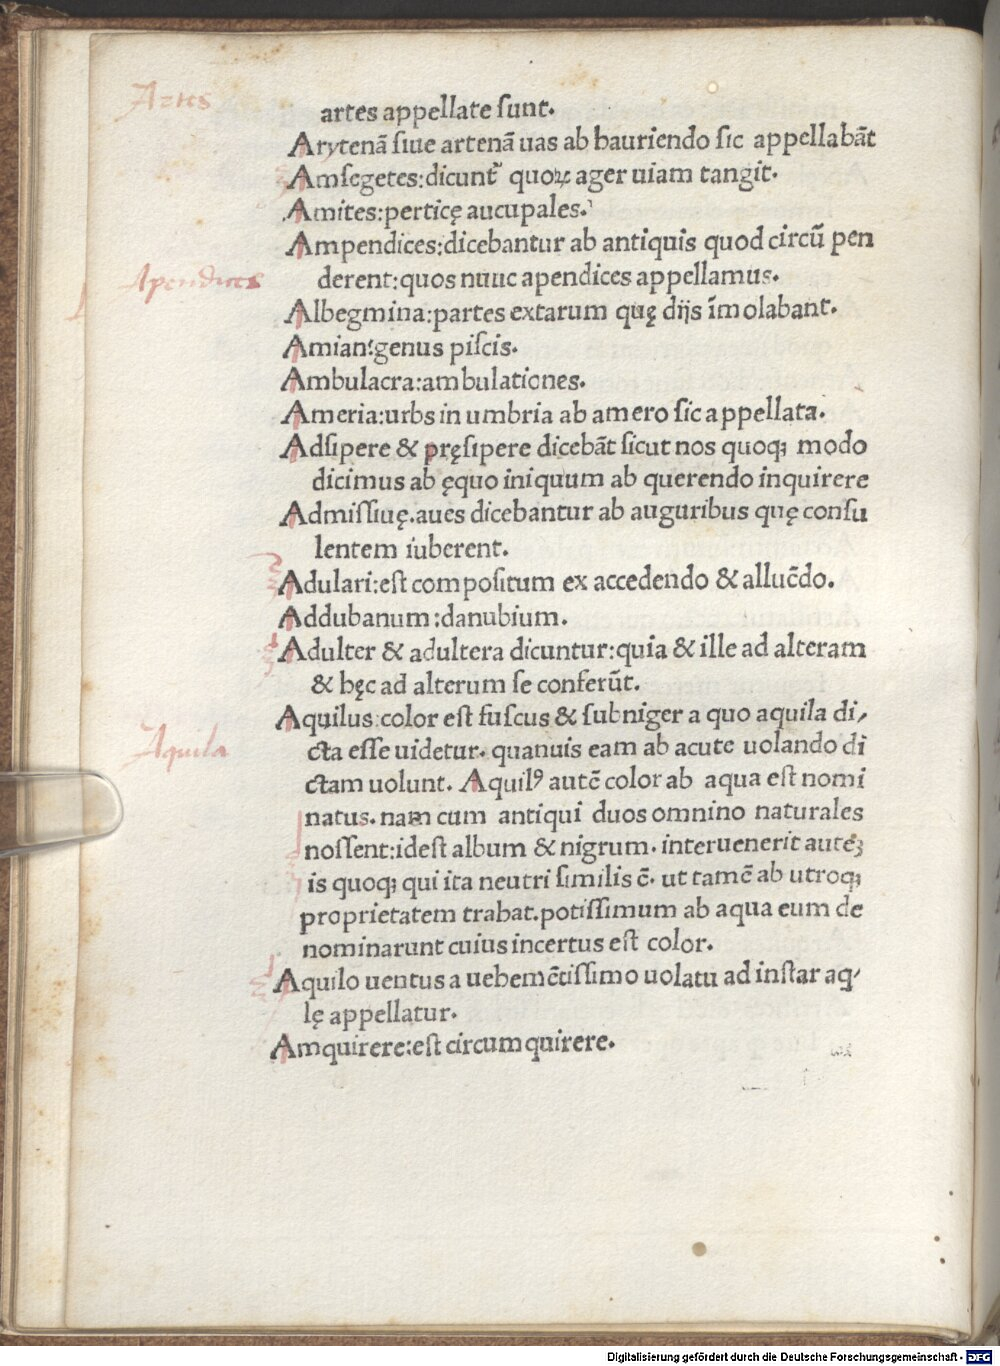 Artes
artes appellate sunt.
Arytenã siue artenã uas ab hauriendo sic appellabãt
Amsegetes:dicunt᷑ quoꝝ ager uiam tangit.
Amites:perticę aucupales.
Ampendices:dicebantur ab antiquis quod circũ pen
Apendices
derent:quos nunc apendices appellamus.
Albegmina:partes extarum quę diis ĩmolabant.
Amian:genus piscis.
Ambulacra:ambulationes.
Ameria:urbs in umbria ab amero sic appellata.
Adsipere & pręsipere dicebãt sicut nos quoqꝫ modo
dicimus ab ęquo iniquum ab querendo inquirere
Admissiuę.aues dicebantur ab auguribus quę consu
lentem iuberent.
Adulari:est compositum ex accedendo & alludẽdo.
Addubanum:danubium.
Adulter & adultera dicuntur:quia & ille ad alteram
& hęc ad alterum se conferũt.
Aquilus:color est fuscus & subniger a quo aquila di/
Aquila
cta esse uidetur. quanuis eam ab acute uolando di
ctam uolunt. Aquilꝰ autẽ color ab aqua est nomi
natus. nam cum antiqui duos omnino naturales
nossent:idest album & nigrum. interuenerit auteꝫ
is quoqꝫ qui ita neutri similis ẽ. ut tamẽ ab utroqꝫ
proprietatem trahat.potissimum ab aqua eum de
nominarunt cuius incertus est color.
Aquilo uentus a uehemẽtissimo uolatu ad instar aq/
lę appellatur.
Amquirere:est circumquirere.
Digitalisierung gefördert durch die Deutsche Forschungsgemeinschaft - DFG